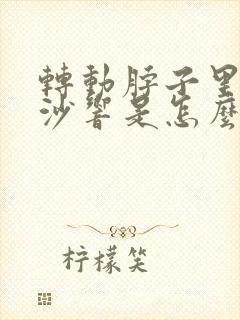 轉動脖子里
沙響是怎麼
柠檬笑